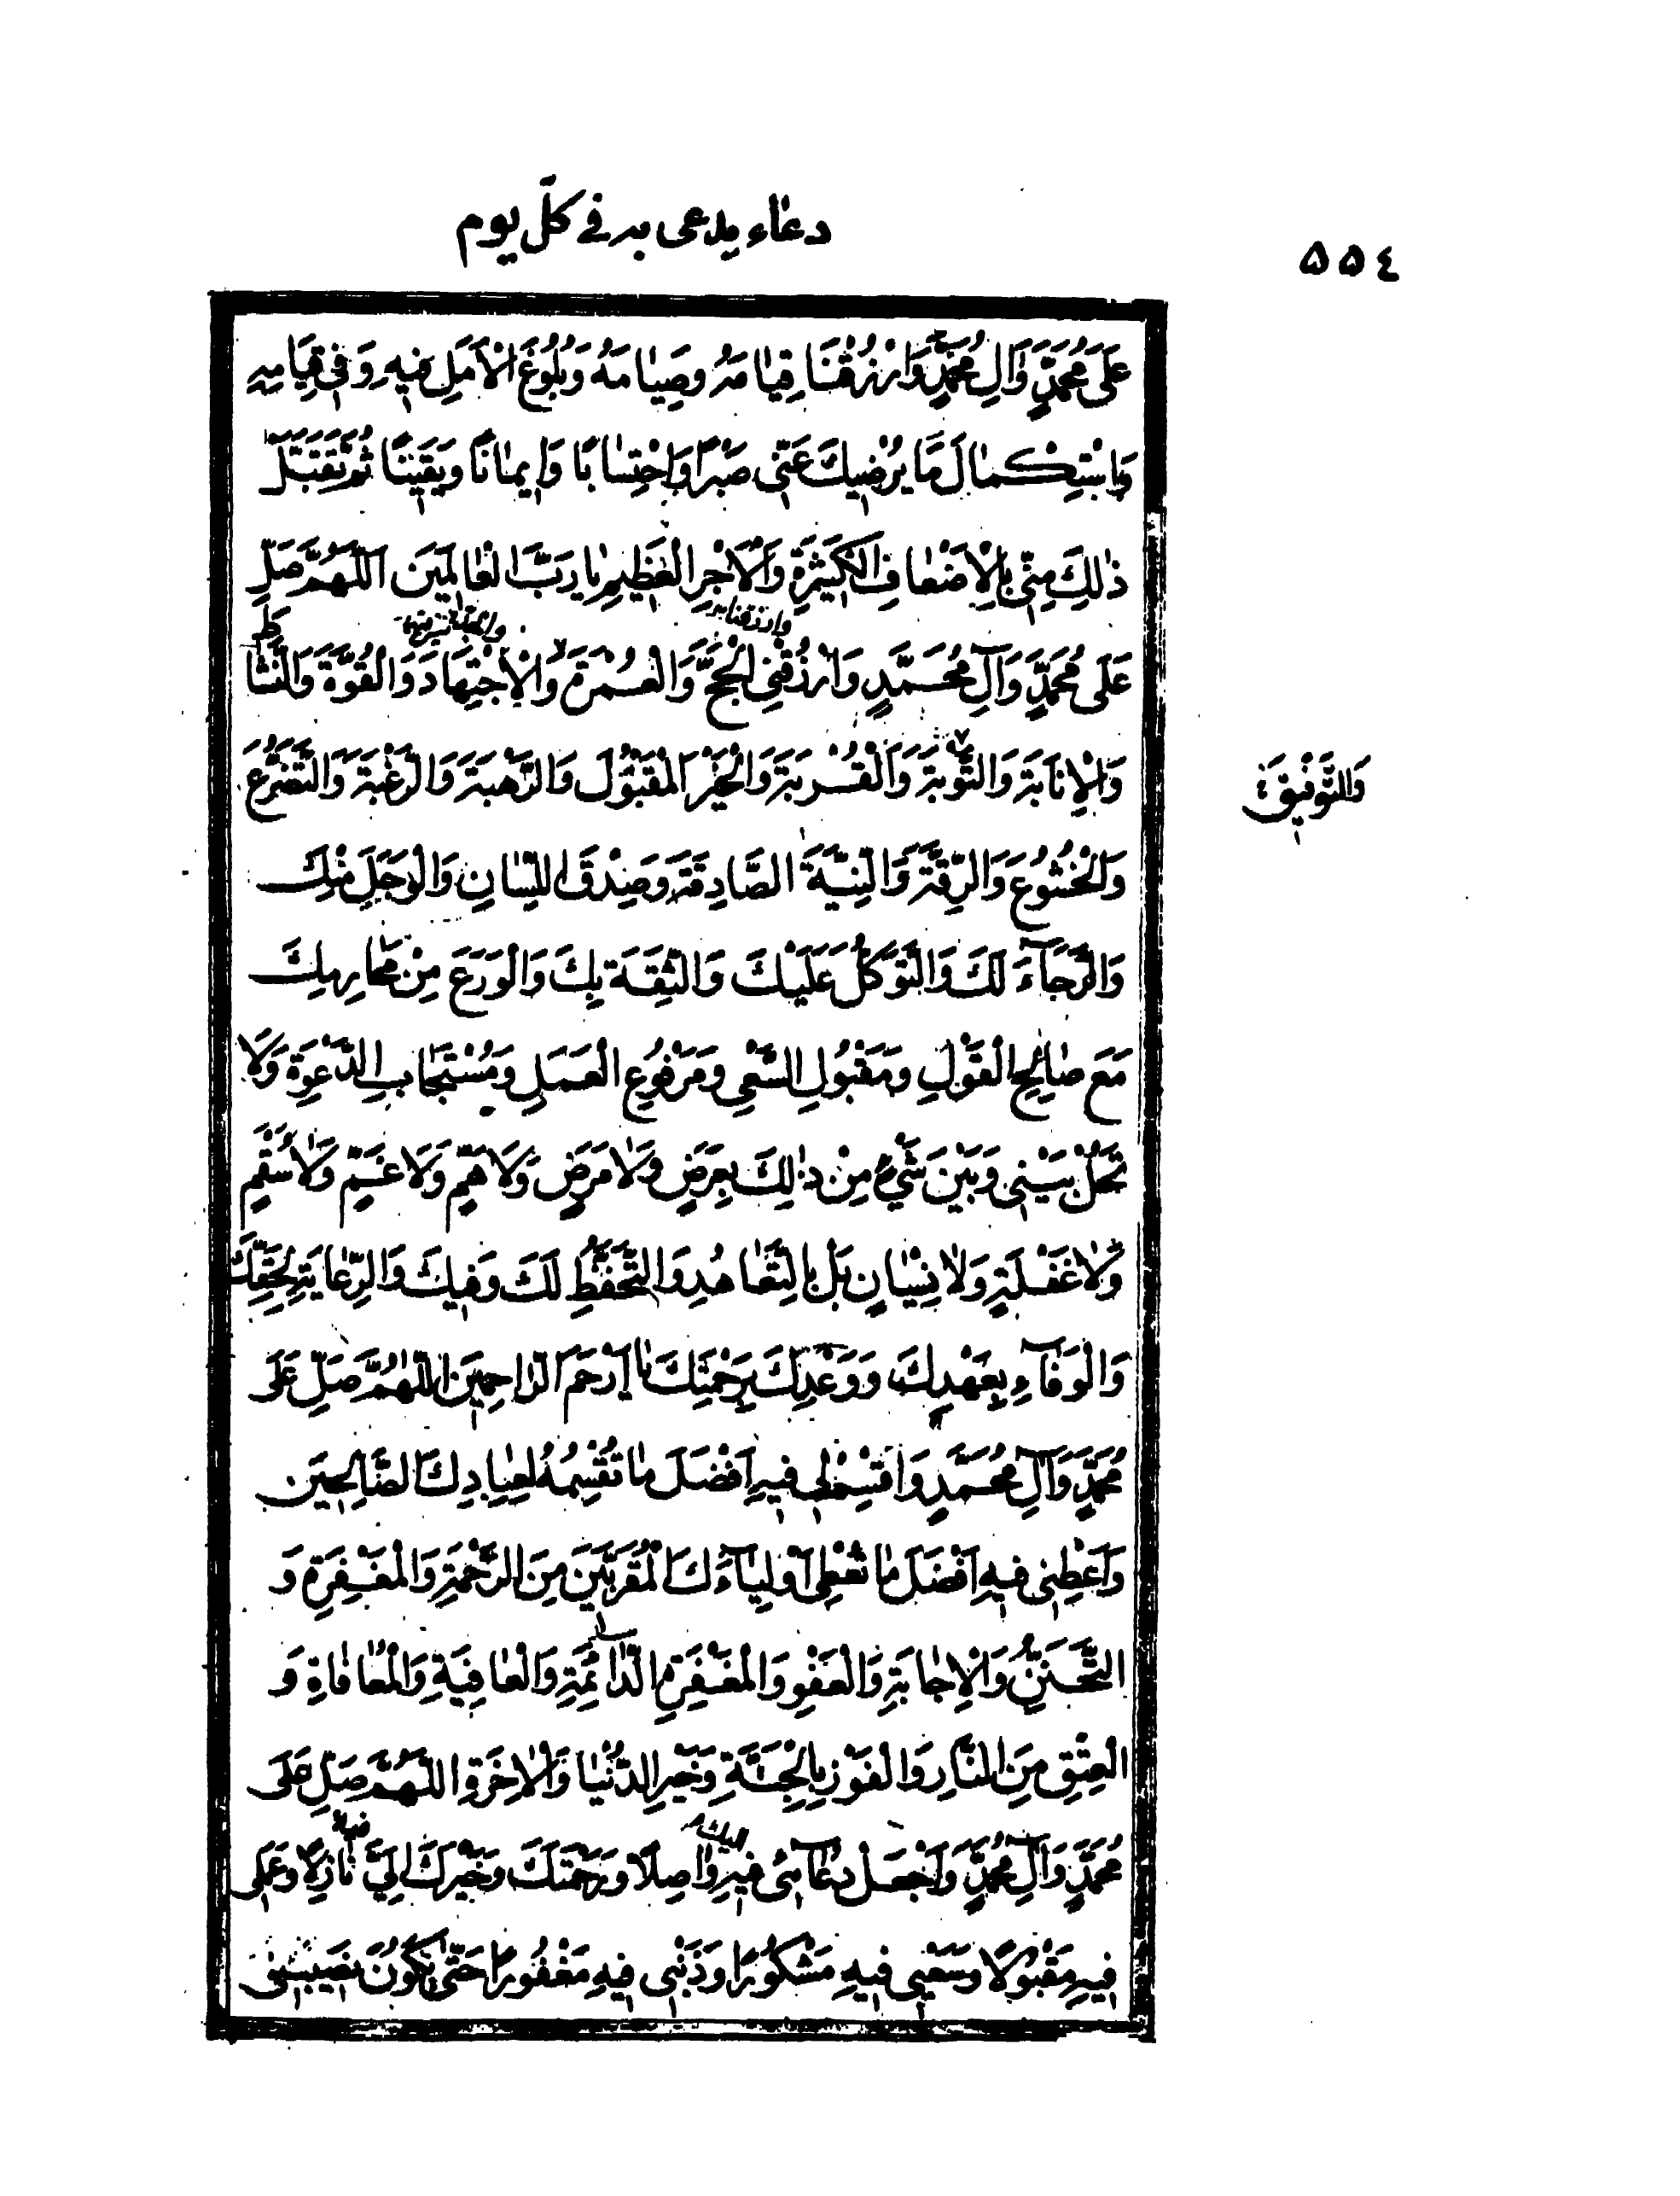 دعاء يدعى به في كلّ يوم
٥٥٤
عَلَى مُحَمَّدٍ وَآلِ مُحَمَّدٍ وَارْزُقْنَا قِيَامَهُ وَصِيَامَهُ وَبُلُوغَ الْأَمَلِ فِيهِ وَفِي قِيَامِهِ
وَاسْتِكْمَالَ مَا يُرْضِيكَ عَنّي صَبْرًا وَاحْتِسَابًا وَإِيمَانًا وَيَقِينًا ثُمَّ تَقَبَّلْ
ذٰلِكَ مِنّي بِالْأَضْعَافِ الْكَثِيرَةِ وَالْأَجْرِ الْعَظِيمِ يَا رَبَّ الْعَالَمِينَ اَللّهُمَّ صَلِّ
وارزقنا
عَلَى مُحَمَّدٍ وَآلِ مُحَمَّدٍ وَارْزُقْنِي الْحَجَّ وَالْعُمْرَةَ وَالْاِجْتِهَادَ وَالْقُوَّةَ وَالنَّشَاطَ
وَالْإِنَابَةَ وَالتَّوْبَةَ وَالْقُرْبَةَ وَالْخَيْرَ الْمَقْبُولَ وَالرَّهْبَةَ وَالرَّغْبَةَ وَالتَّضَرُّعَ
وَالتَّوْفِيقَ
وَالْخُشُوعَ وَالرِّقَّةَ وَالنِّيَّةَ الصَّادِقَةَ وَصِدْقَ اللِّسَانِ وَالْوَجَلَ مِنْكَ
وَالرَّجَاءَ لَكَ وَالتَّوَكُّلَ عَلَيْكَ وَالثِّقَةَ بِكَ وَالْوَرَعَ مِنْ مَحَارِمِكَ
مَعَ صَالِحِ الْقَوْلِ وَمَقْبُولِ السَّعْيِ وَمَرْفُوعِ الْعَمَلِ وَمُسْتَجَابِ الدَّعْوَةِ وَلَا
تَحُلْ بَيْنِي وَبَيْنَ شَيْءٍ مِنْ ذٰلِكَ بِعَرَضٍ وَلَا مَرَضٍ وَلَا هَمٍّ وَلَا غَمٍّ وَلَا سُقْمٍ
وَلَا غَفْلَةٍ وَلَا نِسْيَانٍ بَلْ بِالتَّعَاهُدِ وَالتَّحَفُّظِ لَكَ وَفِيكَ وَالرِّعَايَةِ لِحَقِّكَ
وَالْوَفَاءِ بِعَهْدِكَ وَوَعْدِكَ بِرَحْمَتِكَ يَا أَرْحَمَ الرَّاحِمِينَ اَللّهُمَّ صَلِّ عَلَى
مُحَمَّدٍ وَآلِ مُحَمَّدٍ وَاقْسِمْ لِي فِيهِ أَفْضَلَ مَا تَقْسِمُهُ لِعِبَادِكَ الصَّالِحِينَ
وَأَعْطِنِي فِيهِ أَفْضَلَ مَا تُعْطِي أَوْلِيَاءَكَ الْمُقَرَّبِينَ مِنَ الرَّحْمَةِ وَالْمَغْفِرَةِ وَ
التَّحَنُّنِ وَالْإِجَابَةِ وَالْعَفْوِ وَالْمَغْفِرَةِ الدَّائِمَةِ وَالْعَافِيَةِ وَالْمُعَافَاةِ وَ
الْعِتْقِ مِنَ النَّارِ وَالْفَوْزِ بِالْجَنَّةِ وَخَيْرِ الدُّنْيَا وَالْآخِرَةِ اَللّهُمَّ صَلِّ عَلَى
اليك فيه
مُحَمَّدٍ وَآلِ مُحَمَّدٍ وَاجْعَلْ دُعَائِي فِيهِ وَاصِلًا وَرَحْمَتَكَ وَخَيْرَكَ إِلَيَّ نَازِلًا وَعَمَلِي
فِيهِ مَقْبُولًا وَسَعْيِي فِيهِ مَشْكُورًا وَذَنْبِي فِيهِ مَغْفُورًا حَتَّى يَكُونَ نَصِيبِي